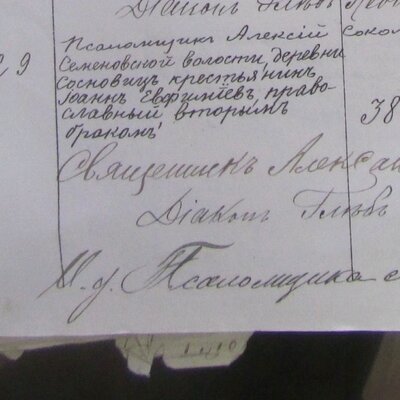 Діаконъ Глѣбъ
Псаломщикъ Алексій Соко
Семеновской волости, деревни
9 Сосновицъ крестьянинъ
Іоаннъ Евфиміевъ, право
славный вторымъ 38
бракомъ
Священникъ Алекса
Діаконъ Глѣбъ
И. д. Псаломщика